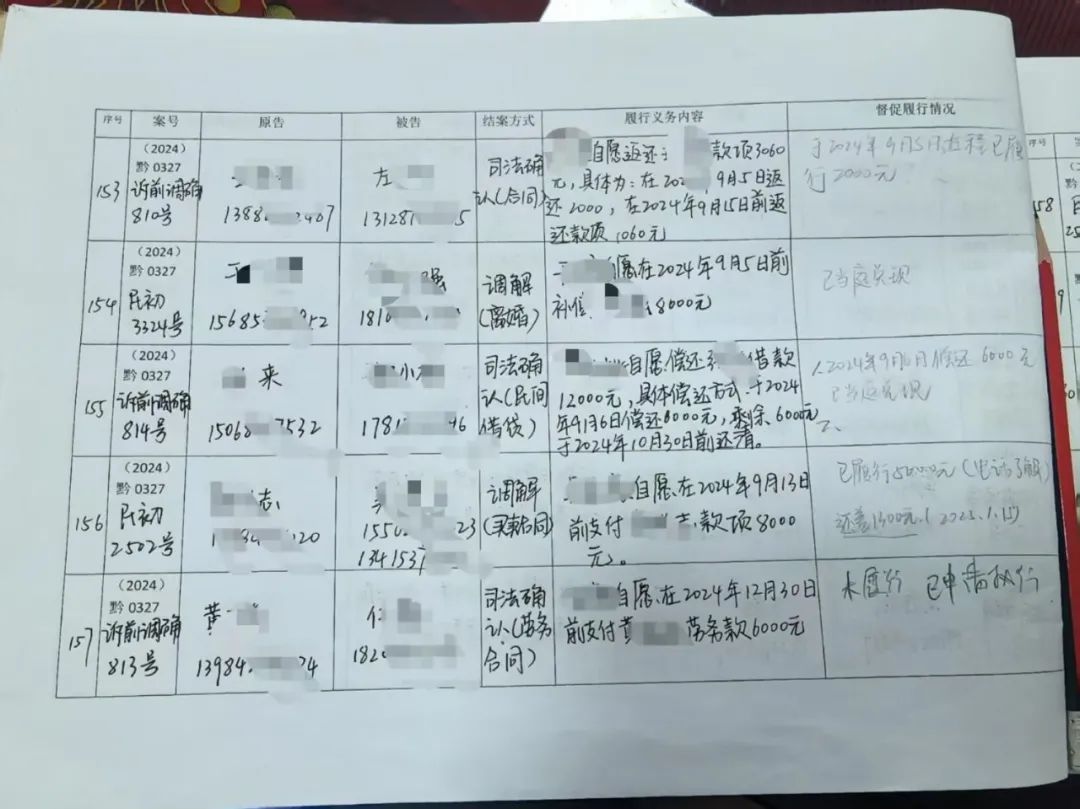 序号 案号 原告 被告 结案方式 履行义务内容 督促履行情况
153
（2024）
黔 0327
诉前调确
810号
1388 2407
左
13128 5
司法确
认(合同)
自愿返还 款项3060
元,具体为:在202 9月5日返
还2000,在2024年9月15日前返
还款项1060元
于2024年9月5日 已履
行2000元
154
（2024）
黔 0327
民初
3324号
王
15685 52
强
1810
调解
(离婚)
王 自愿在2024年9月5日前
8000元
已当庭兑现
155
（2024）
黔 0327
诉前调确
814号
来
1506 7532
小
178 6
司法确
认(民间
借贷)
自愿偿还 借款
12000元,具体偿还方式:于2024
年9月6日偿还6000元,剩余6000元
于2024年10月30日前还清。
2024年9月6日偿还6000元
已当庭兑现
156
（2024）
黔 0327
民初
2502号
志
34 20
吴
1550 23
134153
调解
(买卖合同)
自愿在2024年9月13日
前支付 款项8000
元。
已履行 元(电话了解)
还差1300元(2025.1.15)
157
（2024）
黔 0327
诉前调确
813号
黄
13984 24
182
司法确
认(劳务
合同)
自愿在2024年12月30日
前支付黄 劳务款6000元
未履行 已申请执行
158